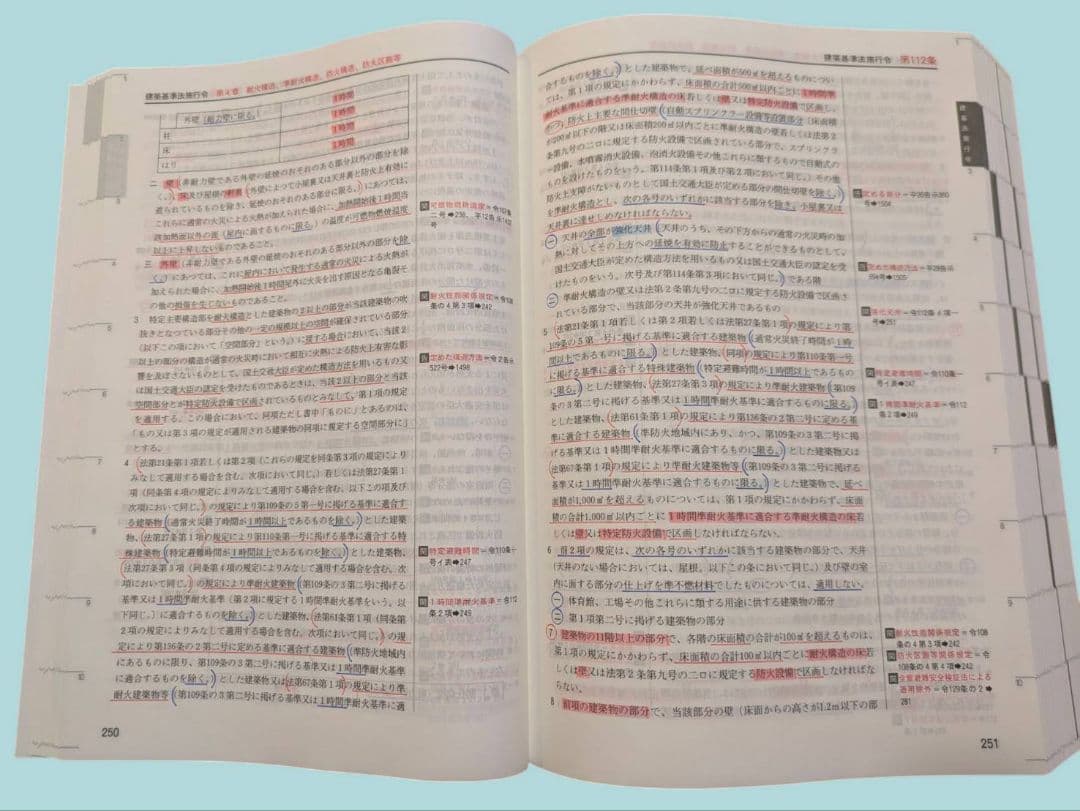 建築基準法施行令 第4章 耐火構造、準耐火構造、防火構造、防火区画等
外壁(耐力壁に限る。) 1時間
柱 1時間
床 1時間
はり 1時間
二 壁(非耐力壁である外壁の延焼のおそれのある部分以外の部分を除
く。)、床及び屋根の軒裏(外壁によつて小屋裏又は天井裏と防火上有効に
遮られているものを除き、延焼のおそれのある部分に限る。)にあつては、
これらに通常の火災による火熱が加えられた場合に、加熱開始後1時間当
該加熱面以外の面(屋内に面するものに限る。)の温度が可燃物燃焼温度
以上に上昇しないものであること。
三 外壁(非耐力壁である外壁の延焼のおそれのある部分以外の部分を除
く。)にあつては、これに屋内において発生する通常の火災による火熱が
加えられた場合に、加熱開始後1時間屋外に火炎を出す原因となる亀裂そ
の他の損傷を生じないものであること。
3 特定主要構造部を耐火構造とした建築物の2以上の部分が当該建築物の吹
抜きとなつている部分その他の一定の規模以上の空間が確保されている部分
(以下この項において「空間部分」という。)に接する場合において、当該2
以上の部分の構造が通常の火災時において相互に火熱による防火上有害な影
響を及ぼさないものとして、国土交通大臣が定めた構造方法を用いるもの又
は国土交通大臣の認定を受けたものであるときは、当該2以上の部分と当該
空間部分とが特定防火設備で区画されているものとみなして、第1項の規定
を適用する。この場合において、同項ただし書中「ものに」とあるのは、
「もの又は第3項の規定が適用される建築物の同項に規定する空間部分に」
とする。
4 法第21条第1項若しくは第2項(これらの規定を同条第3項の規定により
みなして適用する場合を含む。次項において同じ。)若しくは法第27条第1
項(同条第4項の規定によりみなして適用する場合を含む。以下この項及び
次項において同じ。)の規定により第109条の5第一号に掲げる基準に適合す
る建築物(通常火災終了時間が1時間以上であるものを除く。)とした建築
物、法第27条第1項の規定により第110条第一号に掲げる基準に適合する特
殊建築物(特定避難時間が1時間以上であるものを除く。)とした建築物、
法第27条第3項(同条第4項の規定によりみなして適用する場合を含む。次
項において同じ。)の規定により準耐火建築物(第109条の3第二号に掲げる
基準又は1時間準耐火基準(第2項に規定する1時間準耐火基準をいう。以
下同じ。)に適合するものを除く。)とした建築物、法第61条第1項(同条第
2項の規定によりみなして適用する場合を含む。次項において同じ。)の規
定により第136条の2第二号に定める基準に適合する建築物(準防火地域内
にあるものに限り、第109条の3第二号に掲げる基準又は1時間準耐火基準
に適合するものを除く。)とした建築物又は法第67条第1項の規定により準
耐火建築物等(第109条の3第二号に掲げる基準又は1時間準耐火基準に適
関 可燃物燃焼温度=令107条
二号➡238、平12告示1432
号
関 耐火性能関係規定=令108
条の4第3項➡242
告 定めた構造方法=令2告示
522号➡1498
関 特定避難時間=令110条一
号イ表➡247
関 1時間準耐火基準=令112
条2項➡249
250
建築基準法施行令 第112条
建築基準法施行令
合するものを除く。)とした建築物で、延べ面積が500㎡を超えるものについ
ては、第1項の規定にかかわらず、床面積の合計500㎡以内ごとに1時間準
耐火基準に適合する準耐火構造の床若しくは壁又は特定防火設備で区画し、
かつ、防火上主要な間仕切壁(自動スプリンクラー設備等設置部分(床面積
が200㎡以下の階又は床面積200㎡以内ごとに準耐火構造の壁若しくは法第2
条第九号の二ロに規定する防火設備で区画されている部分で、スプリンクラ
ー設備、水噴霧消火設備、泡消火設備その他これらに類するもので自動式の
ものを設けたものをいう。第114条第1項及び第2項において同じ。)その他
防火上支障がないものとして国土交通大臣が定める部分の間仕切壁を除く。)
を準耐火構造とし、次の各号のいずれかに該当する部分を除き、小屋裏又は
天井裏に達せしめなければならない。
一 天井の全部が強化天井(天井のうち、その下方からの通常の火災時の加
熱に対してその上方への延焼を有効に防止することができるものとして、
国土交通大臣が定めた構造方法を用いるもの又は国土交通大臣の認定を受
けたものをいう。次号及び第114条第3項において同じ。)である階
二 準耐火構造の壁又は法第2条第九号の二ロに規定する防火設備で区画さ
れている部分で、当該部分の天井が強化天井であるもの
5 法第21条第1項若しくは第2項若しくは法第27条第1項の規定により第
109条の5第一号に掲げる基準に適合する建築物(通常火災終了時間が1時
間以上であるものに限る。)とした建築物、同項の規定により第110条第一号
に掲げる基準に適合する特殊建築物(特定避難時間が1時間以上であるもの
に限る。)とした建築物、法第27条第3項の規定により準耐火建築物(第109
条の3第二号に掲げる基準又は1時間準耐火基準に適合するものに限る。)
とした建築物、法第61条第1項の規定により第136条の2第二号に定める基
準に適合する建築物(準防火地域内にあり、かつ、第109条の3第二号に掲
げる基準又は1時間準耐火基準に適合するものに限る。)とした建築物又は
法第67条第1項の規定により準耐火建築物等(第109条の3第二号に掲げる
基準又は1時間準耐火基準に適合するものに限る。)とした建築物で、延べ
面積が1,000㎡を超えるものについては、第1項の規定にかかわらず、床面
積の合計1,000㎡以内ごとに1時間準耐火基準に適合する準耐火構造の床若
しくは壁又は特定防火設備で区画しなければならない。
6 前2項の規定は、次の各号のいずれかに該当する建築物の部分で、天井
(天井のない場合においては、屋根。以下この条において同じ。)及び壁の室
内に面する部分の仕上げを準不燃材料でしたものについては、適用しない。
一 体育館、工場その他これらに類する用途に供する建築物の部分
二 第1項第二号に掲げる建築物の部分
7 建築物の11階以上の部分で、各階の床面積の合計が100㎡を超えるものは、
第1項の規定にかかわらず、床面積の合計100㎡以内ごとに耐火構造の床若
しくは壁又は法第2条第九号の二ロに規定する防火設備で区画しなければな
らない。
8 前項の建築物の部分で、当該部分の壁(床面からの高さが1.2m以下の部
関 特定避難時間=令110条一
号イ表➡247
関 1時間準耐火基準=令112
条2項➡249
関 耐火性能関係規定=令108
条の4第3項➡242
関 防火区画等関係規定=令
108条の4第4項➡242
関 全館避難安全検証法による
適用除外=令129条の2➡
281
251